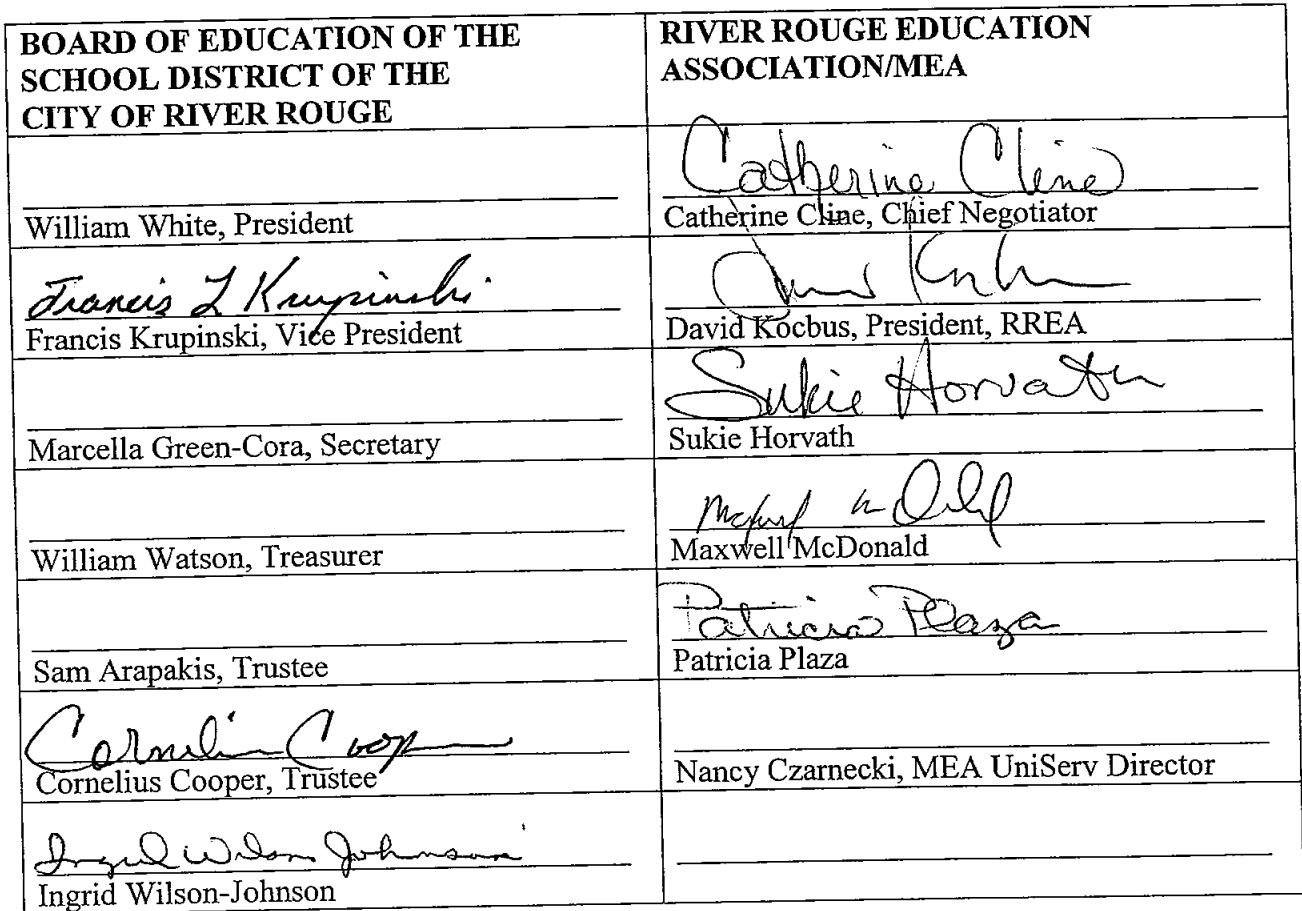 BOARD OF EDUCATION OF THE
SCHOOL DISTRICT OF THE
CITY OF RIVER ROUGE
RIVER ROUGE EDUCATION
ASSOCIATION/MEA
William White, President
Catherine Cline
Catherine Cline, Chief Negotiator
Francis L Krupinski
Francis Krupinski, Vice President
David Kocbus, President, RREA
Marcella Green-Cora, Secretary
Sukie Horvath
Sukie Horvath
William Watson, Treasurer
Maxwell McDonald
Sam Arapakis, Trustee
Patricia Plaza
Patricia Plaza
Cornelius Cooper
Cornelius Cooper, Trustee
Nancy Czarnecki, MEA UniServ Director
Ingrid Wilson Johnson
Ingrid Wilson-Johnson